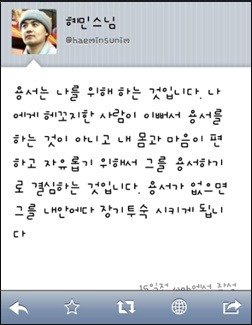 혜민스님
@haeminsunim
용서는 나를 위해 하는 것입니다. 나
에게 해꼬지한 사람이 이뻐서 용서를
하는 것이 아니고 내 몸과 마음이 편
하고 자유롭기 위해서 그를 용서하기
로 결심하는 것입니다. 용서가 없으면
그를 내안에다 장기투숙 시키게 됩니
다